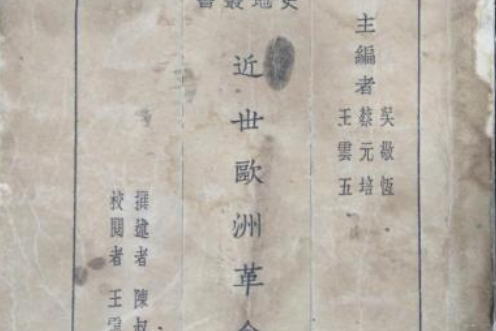 史地叢書
主編者
吳敬恆
蔡元培
王雲五
近世歐洲革命
撰述者 陳叔
校閱者 王雲